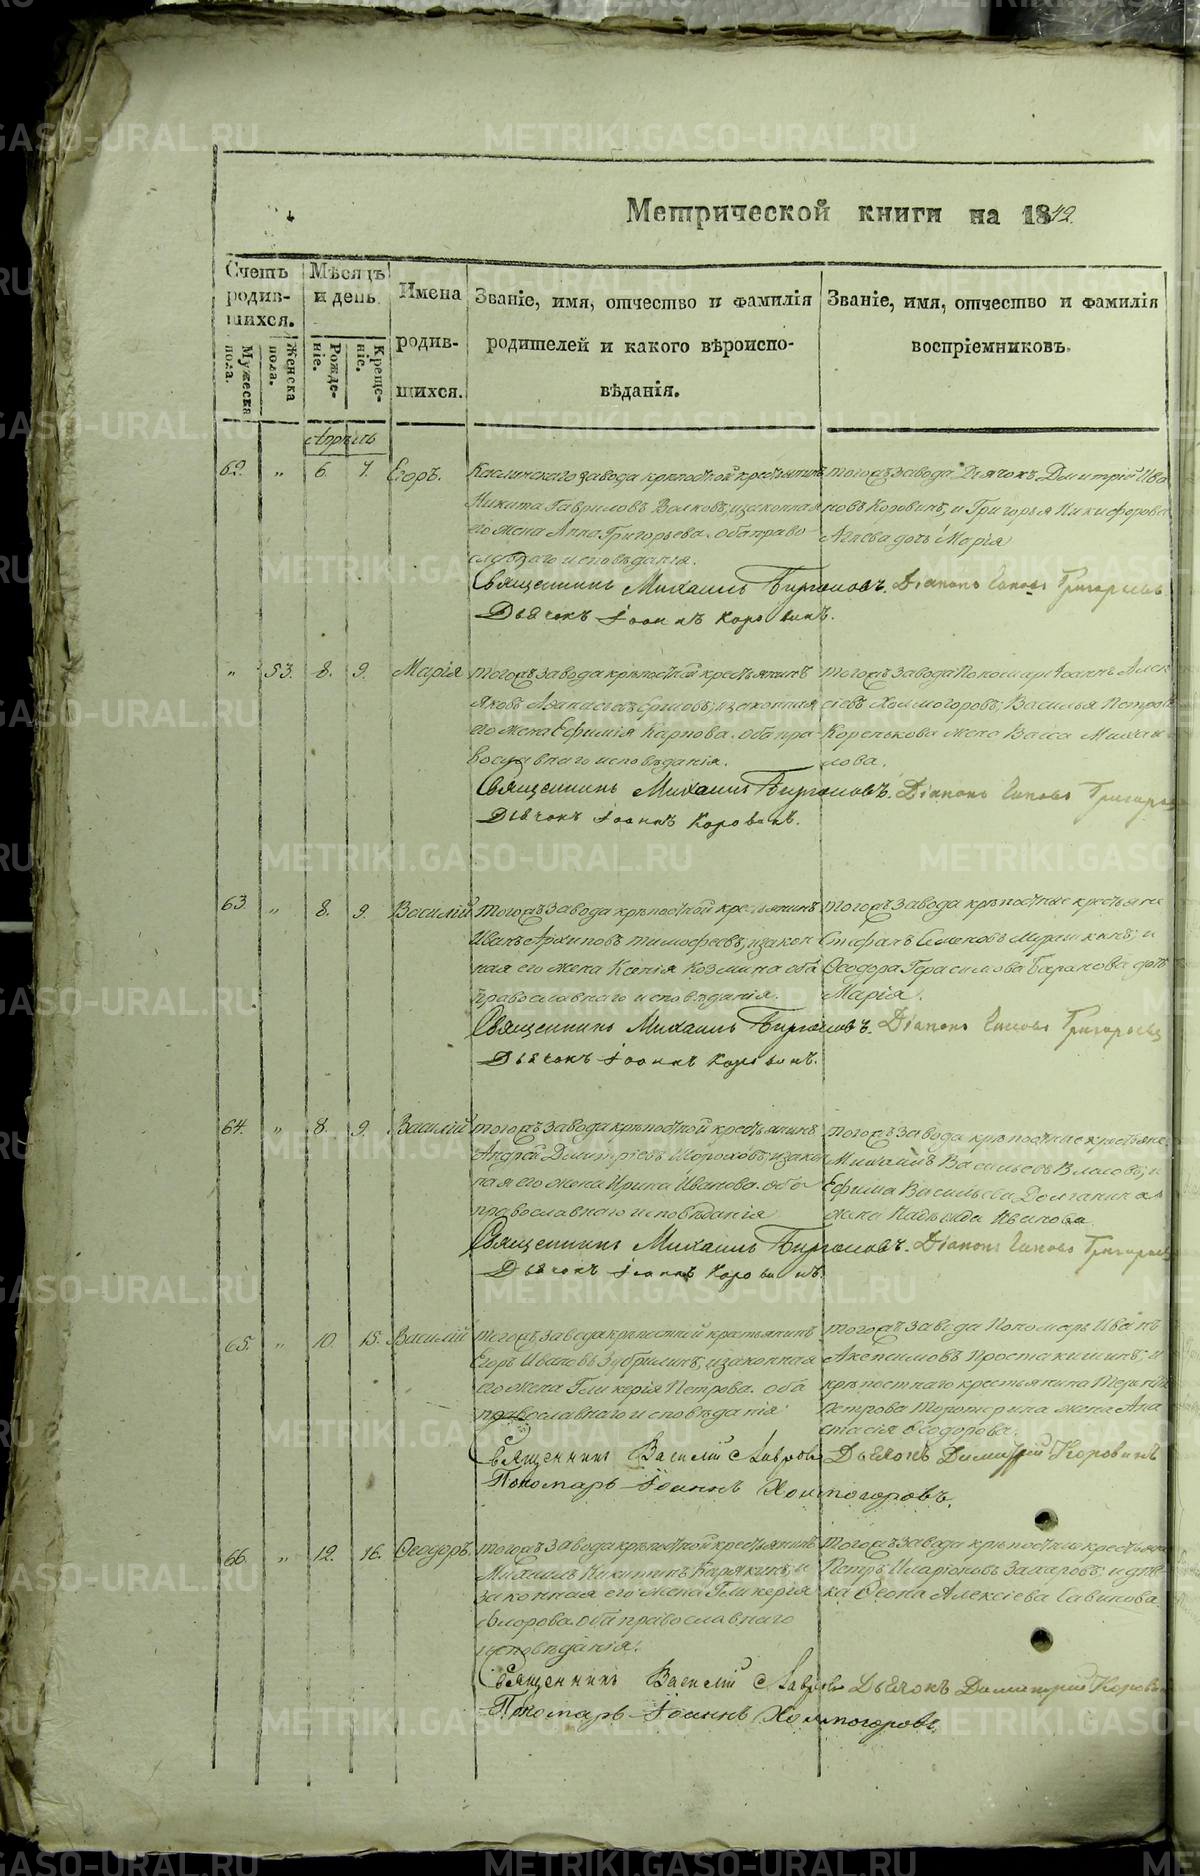 Метрической книги на 1842.
Счетъ родив-шихся.
Мужеска пола.
Женска пола.
Мѣсяцъ и день
Рожде-ніе.
Креще-ніе.
Имена родив-шихся.
Званіе, имя, отчество и фамилія
родителей и какого вѣроиспо-
вѣданія.
Званіе, имя, отчество и фамилія
воспріемниковъ.
Апрѣль
62. „ 6 7. Егоръ.
Каслинскаго завода крѣпостной крестьянинъ
Никита Гавриловъ Волковъ, и законная
его жена Анна Григорьева. оба право
славнаго исповѣданія.
тогожъ завода Дьячокъ Димитрій Ива
новъ Коровинъ, и Григорья Никифорова
дочь Марія
Священникъ Михаилъ Діаконъ Григорьевъ
Дьячокъ Іоаннъ Коровинъ.
„ 53. 8. 9. Марія
тогожъ завода крѣпостной крестьянинъ
Яковъ Аѳанасьевъ, и законная
его жена Ефимія Карпова. оба пра-
вославнаго исповѣданія.
тогожъ завода Пономарь Іоаннъ Алек
сіевъ Холмогоровъ, Василья Петрова
Коренькова жена Васса Михаи
лова.
Священникъ Михаилъ Діаконъ
Дьячокъ Іоаннъ Коровинъ.
63. „ 8. 9. Василій
тогожъ завода крѣпостной крестьянинъ
Иванъ Архиповъ Тимофеевъ, и закон
ная его жена Ксенія Козмина оба
православнаго исповѣданія.
тогожъ завода крѣпостные крестьяне
Стефанъ Семеновъ и
Ѳеодора Герасимова Баранова дочь
Марія.
Священникъ Михаилъ Діаконъ
Дьячокъ Іоаннъ Коровинъ.
64. „ 8. 9. Василій
тогожъ завода крѣпостной крестьянинъ
Андрей Димитріевъ Шороховъ, и закон
ная его жена Ирина Иванова. оба
православнаго исповѣданія
тогожъ завода крѣпостные крестьяне
Михаилъ Васильевъ Власовъ, и
Ефима Васильева
жена Надежда Иванова
Священникъ Михаилъ Діаконъ
Дьячокъ Іоаннъ Коровинъ.
65. „ 10. 15. Василій
тогожъ завода крѣпостной крестьянинъ
Егоръ Ивановъ и законная
его жена Гликерія Петрова. оба
православнаго исповѣданія
тогожъ завода Пономарь Иванъ
и
крѣпостнаго крестьянина
Петрова жена Ана
стасія Ѳеодорова.
Священникъ Василій Лавровъ Дьячокъ Димитрій Коровинъ
Пономарь Іоаннъ Холмогоровъ.
66. „ 12. 16. Ѳеодоръ.
тогожъ завода крѣпостной крестьянинъ
Михаилъ Никитинъ и
законная его жена Гликерія
Флорова. оба православнаго
исповѣданія.
тогожъ завода крѣпостные крестьяне
Петръ Иларіоновъ Захаровъ, и дѣв
ка Алексіева
Священникъ Василій Лавровъ Дьячокъ Димитрій Коровинъ
Пономарь Іоаннъ Холмогоровъ.
METRIKI.GASO-URAL.RU